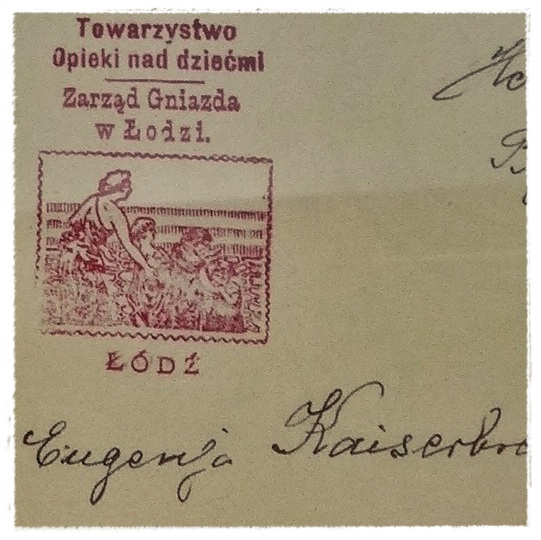 Towarzystwo
Opieki nad dziećmi
Zarząd Gniazda
w Łodzi.
ŁÓDŹ
Eugenja